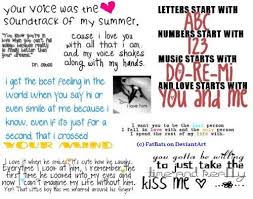 your voice was the
soundtrack of my summer.
You know you're in
love when you can't fall
asleep because reality
is finally better than
your dreams.
Dr. Seuss
cause i love you
with all that i am
and my voice shakes
along with my hands.
LETTERS START WITH
ABC
NUMBERS START WITH
123
MUSIC STARTS WITH
DO-RE-MI
AND LOVE STARTS WITH
YOU and ME
i get the best feeling in the
world when you say hi or
even smile at me because i
know, even if its just for a
second, that i crossed
YOUR MIND
i love him
I want you to be the last person
I fall in love with and the only
I spend the rest of
(c) FatBati on DeviantArt
I love it when he smiles. It's cute how he laughs.
Everytime I look at him, I remember the
first time I looked into his eyes and
now I can't imagine my life without him.
Yep! That little boy has me wrapped around his finger!
you gotta be willing
to just take the
time and
kiss me